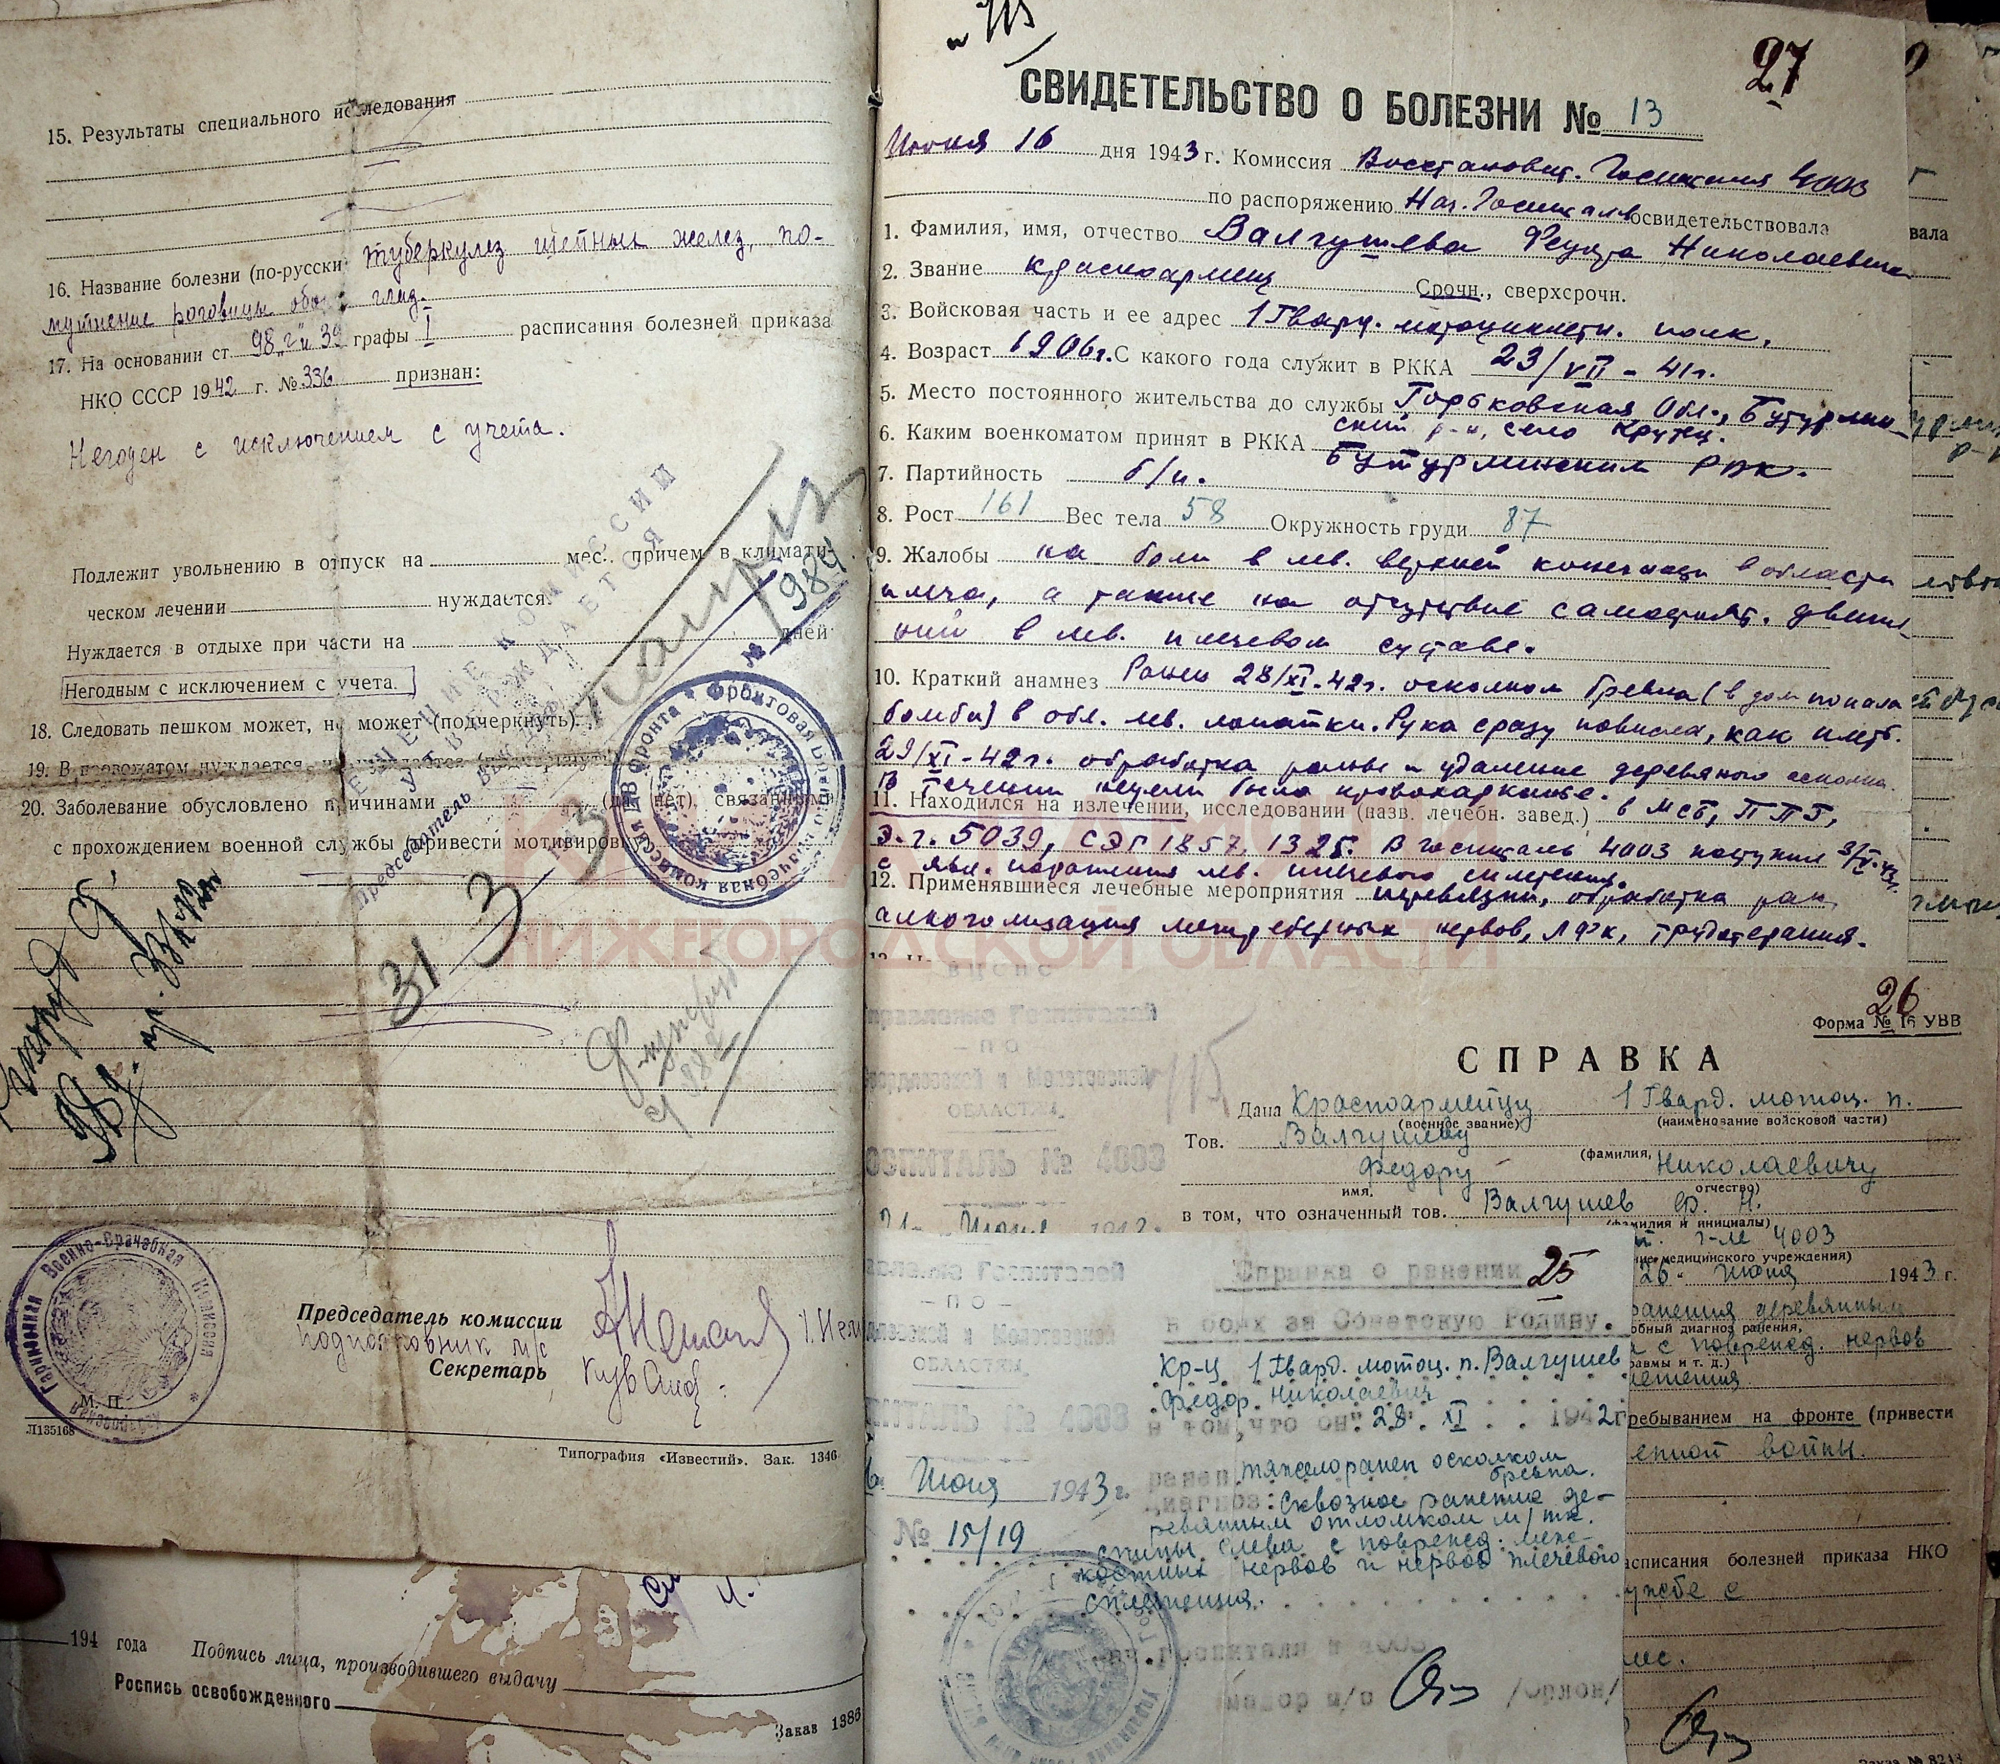 15. Результаты специального исследования
16. Название болезни (по-русски туберкулез шейных желез, по-
мутнение роговицы обоих глаз.
17. На основании ст 98 „г" и 39 графы I расписания болезней приказа
НКО СССР 1942 г. № 336 признан:
Негоден с исключением с учета.
Подлежит увольнению в отпуск на мес. причем в климати-
ческом лечении нуждается.
Нуждается в отдыхе при части на дней
Негодным с исключением с учета.
18. Следовать пешком может, не может (подчеркнуть).
19. В провожатом нуждается, не нуждается (подчеркнуть)
20. Заболевание обусловлено причинами (да, нет), связанными
с прохождением военной службы (привести мотивировку)
№ 984
31 3
Председатель комиссии
подполковник м/с
Секретарь
М. П.
Гарнизонная Военно-Врачебная Комиссия
Л135168
Типография «Известий». Зак. 1346
194 года Подпись лица, производившего выдачу
Роспись освобожденного
Заказ 1386
27
СВИДЕТЕЛЬСТВО О БОЛЕЗНИ № 13
Июня 16 дня 1943 г. Комиссия Восстановит. Госпиталя 4003
по распоряжению Нач. Госпиталя освидетельствовала
1. Фамилия, имя, отчество Валгушева Федора Николаевича
2. Звание красноармеец Срочн., сверхсрочн.
3. Войсковая часть и ее адрес 1 Гвард. мотоциклетн. полк.
4. Возраст 1906г. С какого года служит в РККА 23/VII - 41г.
5. Место постоянного жительства до службы Горьковская Обл., Бутурлин-
ский р-н, село Крутец.
6. Каким военкоматом принят в РККА Бутурлинским РВК.
7. Партийность б/п.
8. Рост 161 Вес тела 58 Окружность груди 87
9. Жалобы на боли в лев. верхней конечности в области
плеча, а также на отсутствие самостоят. движе-
ний в лев. плечевом суставе.
10. Краткий анамнез Ранен 28/XI-42г. осколком бревна (в дом попала
бомба) в обл. лев. лопатки. Рука сразу повисла, как плеть.
29/XI-42г. обработка раны и удаление деревяного осколка
В течении недели было кровохарканье.
11. Находился на излечении, исследовании (назв. лечебн. завед.) в МСБ, ППГ,
э.г. 5039, СЭГ 1857, 1325. В госпиталь 4003 поступил
с явл. поражения лев. плечевого сплетения.
12. Применявшиеся лечебные мероприятия перевязки, обработка ран,
алкоголизация межреберных нервов, ЛФК, трудотерапия.
КНИГА ПАМЯТИ
НИЖЕГОРОДСКОЙ ОБЛАСТИ
ВЦСПС
Управление Госпиталей
- ПО -
Свердловской и Молотовской
ОБЛАСТЯМ.
ГОСПИТАЛЬ № 4003
26
Форма № 16 УВВ
СПРАВКА
Дана Красноармейцу 1 Гвард. мотоц. п.
(военное звание) (наименование войсковой части)
Тов. Валгушеву
(фамилия,
Федору Николаевичу
имя, отчество)
в том, что означенный тов. Валгушев Ф. Н.
(фамилия и инициалы)
г-ле 4003
ние медицинского учреждения)
26 Июня 1943 г.
ранения деревянным
обный диагноз ранения,
с поврежд. нервов
равмы и т. д.)
летения
ребыванием на фронте (привести
енной войны.
асписания болезней приказа НКО
ужбе с
25
Справка о ранении
в боях за Советскую Родину.
Кр-ц 1 Гвард. мотоц. п. Валгушев
Федор Николаевич
в том, что он 28. XI 1942г
ранен тяжелоранен осколком
бревна.
Диагноз: Сквозное ранение де-
ревянным отломком м/тк.
спины слева с поврежд. меж-
костных нервов и нервов плечевого
сплетения.
авление Госпиталей
- ПО -
дловской и Молотовской
ОБЛАСТЯМ
ПИТАЛЬ № 4003
Июня 1943 г.
№ 15/19
Нач. Госпиталя № 4003
майор м/с /Орлов/